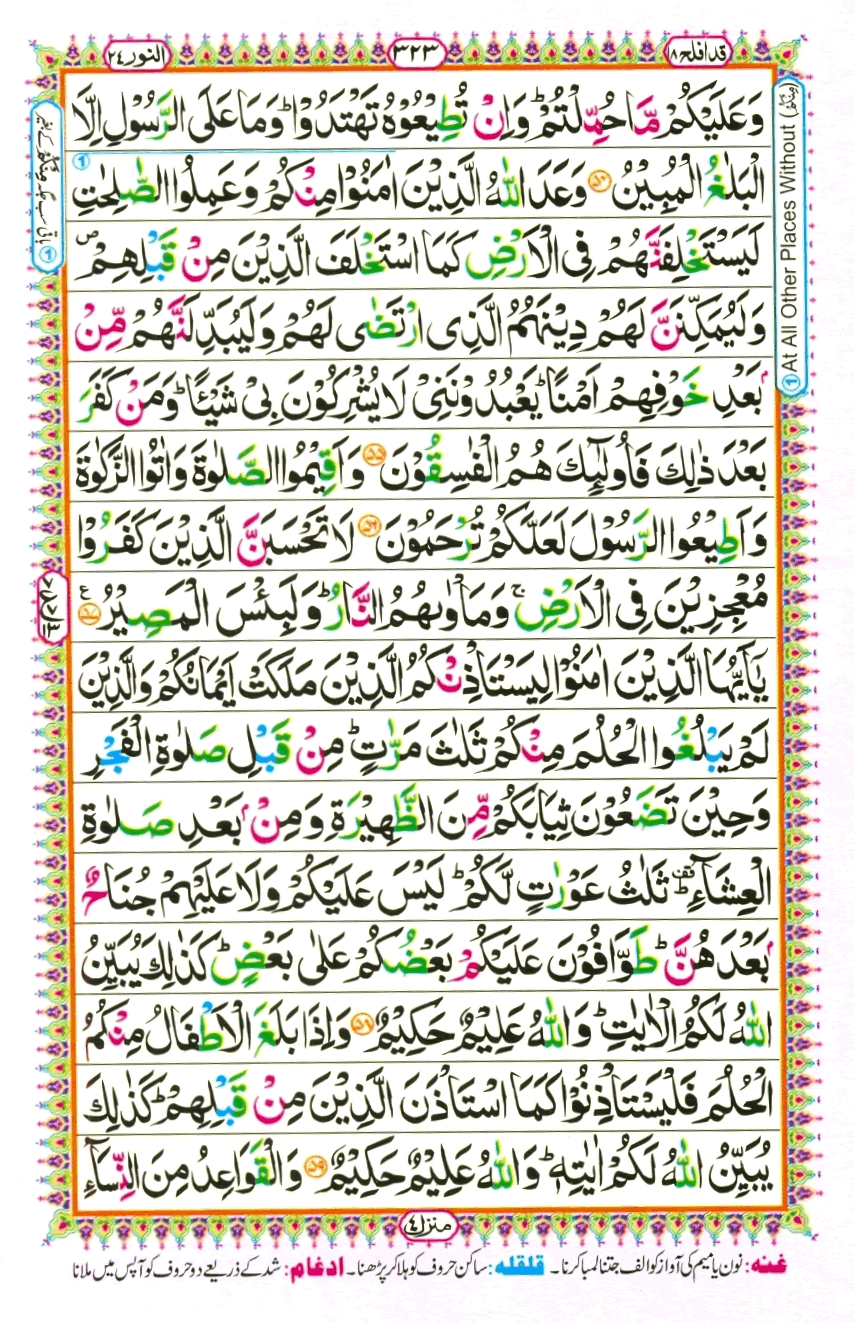 قد افلح ١٨
٣٢٣
النور ٢٤
وَعَلَيْكُمْ مَّا حُمِّلْتُمْ ؕ وَاِنْ تُطِيْعُوْهُ تَهْتَدُوْا ؕ وَمَا عَلَى الرَّسُوْلِ اِلَّا
الْبَلٰغُ الْمُبِيْنُ ﴿۵۴﴾ وَعَدَ اللّٰهُ الَّذِيْنَ اٰمَنُوْا مِنْكُمْ وَعَمِلُوا الصّٰلِحٰتِ
لَيَسْتَخْلِفَنَّهُمْ فِى الْاَرْضِ كَمَا اسْتَخْلَفَ الَّذِيْنَ مِنْ قَبْلِهِمْ ۪
وَلَيُمَكِّنَنَّ لَهُمْ دِيْنَهُمُ الَّذِى ارْتَضٰى لَهُمْ وَلَيُبَدِّلَنَّهُمْ مِّنْۢ
بَعْدِ خَوْفِهِمْ اَمْنًا ؕ يَعْبُدُوْنَنِىْ لَا يُشْرِكُوْنَ بِىْ شَيْئًا ؕ وَمَنْ كَفَرَ
بَعْدَ ذٰلِكَ فَاُولٰٓئِكَ هُمُ الْفٰسِقُوْنَ ﴿۵۵﴾ وَاَقِيْمُوا الصَّلٰوةَ وَاٰتُوا الزَّكٰوةَ
وَاَطِيْعُوا الرَّسُوْلَ لَعَلَّكُمْ تُرْحَمُوْنَ ﴿۵۶﴾ لَا تَحْسَبَنَّ الَّذِيْنَ كَفَرُوْا
مُعْجِزِيْنَ فِى الْاَرْضِ ۚ وَمَاْوٰىهُمُ النَّارُ ؕ وَلَبِئْسَ الْمَصِيْرُ ﴿۵۷﴾ ع
يٰۤاَيُّهَا الَّذِيْنَ اٰمَنُوْا لِيَسْتَاْذِنْكُمُ الَّذِيْنَ مَلَكَتْ اَيْمَانُكُمْ وَالَّذِيْنَ
لَمْ يَبْلُغُوا الْحُلُمَ مِنْكُمْ ثَلٰثَ مَرّٰتٍ ؕ مِنْ قَبْلِ صَلٰوةِ الْفَجْرِ
وَحِيْنَ تَضَعُوْنَ ثِيَابَكُمْ مِّنَ الظَّهِيْرَةِ وَمِنْۢ بَعْدِ صَلٰوةِ
الْعِشَآءِ ؕ ثَلٰثُ عَوْرٰتٍ لَّكُمْ ؕ لَيْسَ عَلَيْكُمْ وَلَا عَلَيْهِمْ جُنَاحٌۢ
بَعْدَهُنَّ ؕ طَوّٰفُوْنَ عَلَيْكُمْ بَعْضُكُمْ عَلٰى بَعْضٍ ؕ كَذٰلِكَ يُبَيِّنُ
اللّٰهُ لَكُمُ الْاٰيٰتِ ؕ وَاللّٰهُ عَلِيْمٌ حَكِيْمٌ ﴿۵۸﴾ وَاِذَا بَلَغَ الْاَطْفَالُ مِنْكُمُ
الْحُلُمَ فَلْيَسْتَاْذِنُوْا كَمَا اسْتَاْذَنَ الَّذِيْنَ مِنْ قَبْلِهِمْ ؕ كَذٰلِكَ
يُبَيِّنُ اللّٰهُ لَكُمْ اٰيٰتِهٖ ؕ وَاللّٰهُ عَلِيْمٌ حَكِيْمٌ ﴿۵۹﴾ وَالْقَوَاعِدُ مِنَ النِّسَآءِ
① At All Other Places Without (مِنْكُمْ)
منزل ٤
غنه: نون یا میم کی آواز کو الف جتنا لمبا کرنا۔ قلقله: ساکن حروف کو ہلا کر پڑھنا۔ ادغام: شد کے ذریعے دو حروف کو آپس میں ملانا